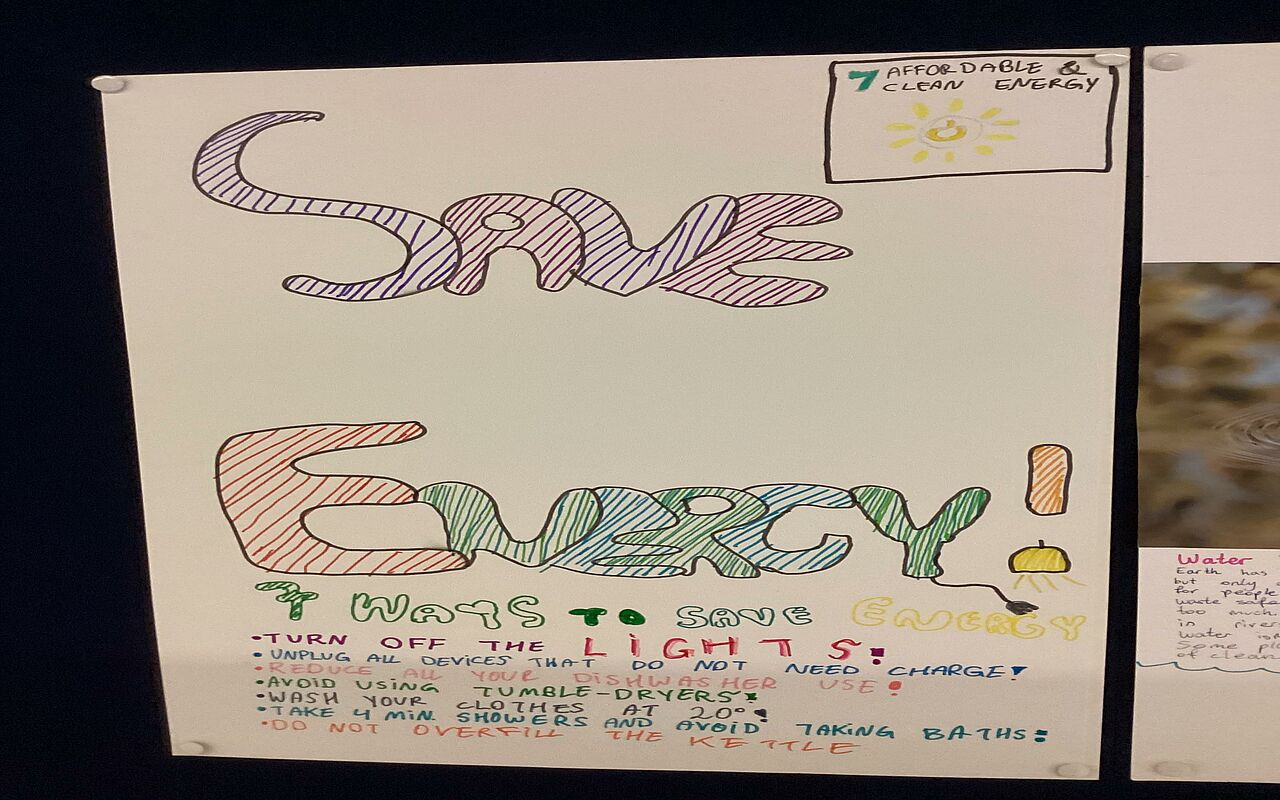 7 AFFORDABLE &
CLEAN ENERGY
SAVE
ENERGY!
7 WAYS TO SAVE ENERGY
•TURN OFF THE LIGHTS!
•UNPLUG ALL DEVICES THAT DO NOT NEED CHARGE!
•REDUCE ALL YOUR DISHWASHER USE!
•AVOID USING TUMBLE-DRYERS!
•WASH YOUR CLOTHES AT 20°!
•TAKE 4 MIN. SHOWERS AND AVOID TAKING BATHS!
•DO NOT OVERFILL THE KETTLE
Water
Earth has
but only
for people
waste safe
too much
in rivers
Water
Some
of clean